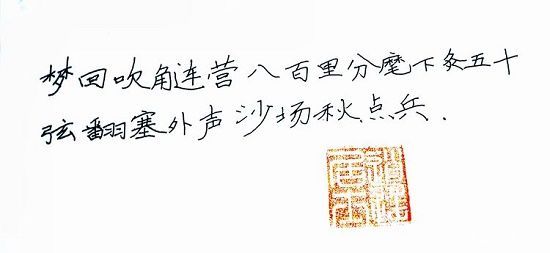 梦回吹角连营八百里分麾下炙五十
弦翻塞外声沙场秋点兵.